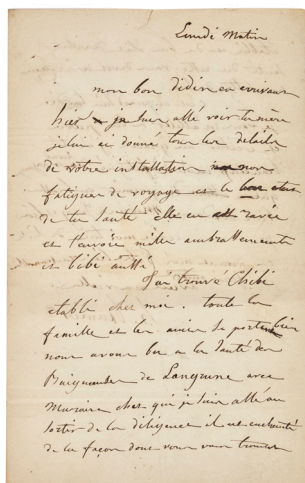 Lundi Matin
mon bon didin en arrivant
hier je suis allé voir ta mère
je lui ai donné tous les details
de votre installation non
fatigues de voyage et le bon etat
de ta Santé elle en est ravie
et t'envoie mille embrassements
et bibi aussi
J'ai trouvé Chibi
etabli chez moi. toute la
famille et les amis se portent bien
nous avons bu a la Santé des
Baigneuses de Langrune avec
chez qui je suis allé au
sortir de la diligence il est enchanté
de la façon dont vous vous trouvez